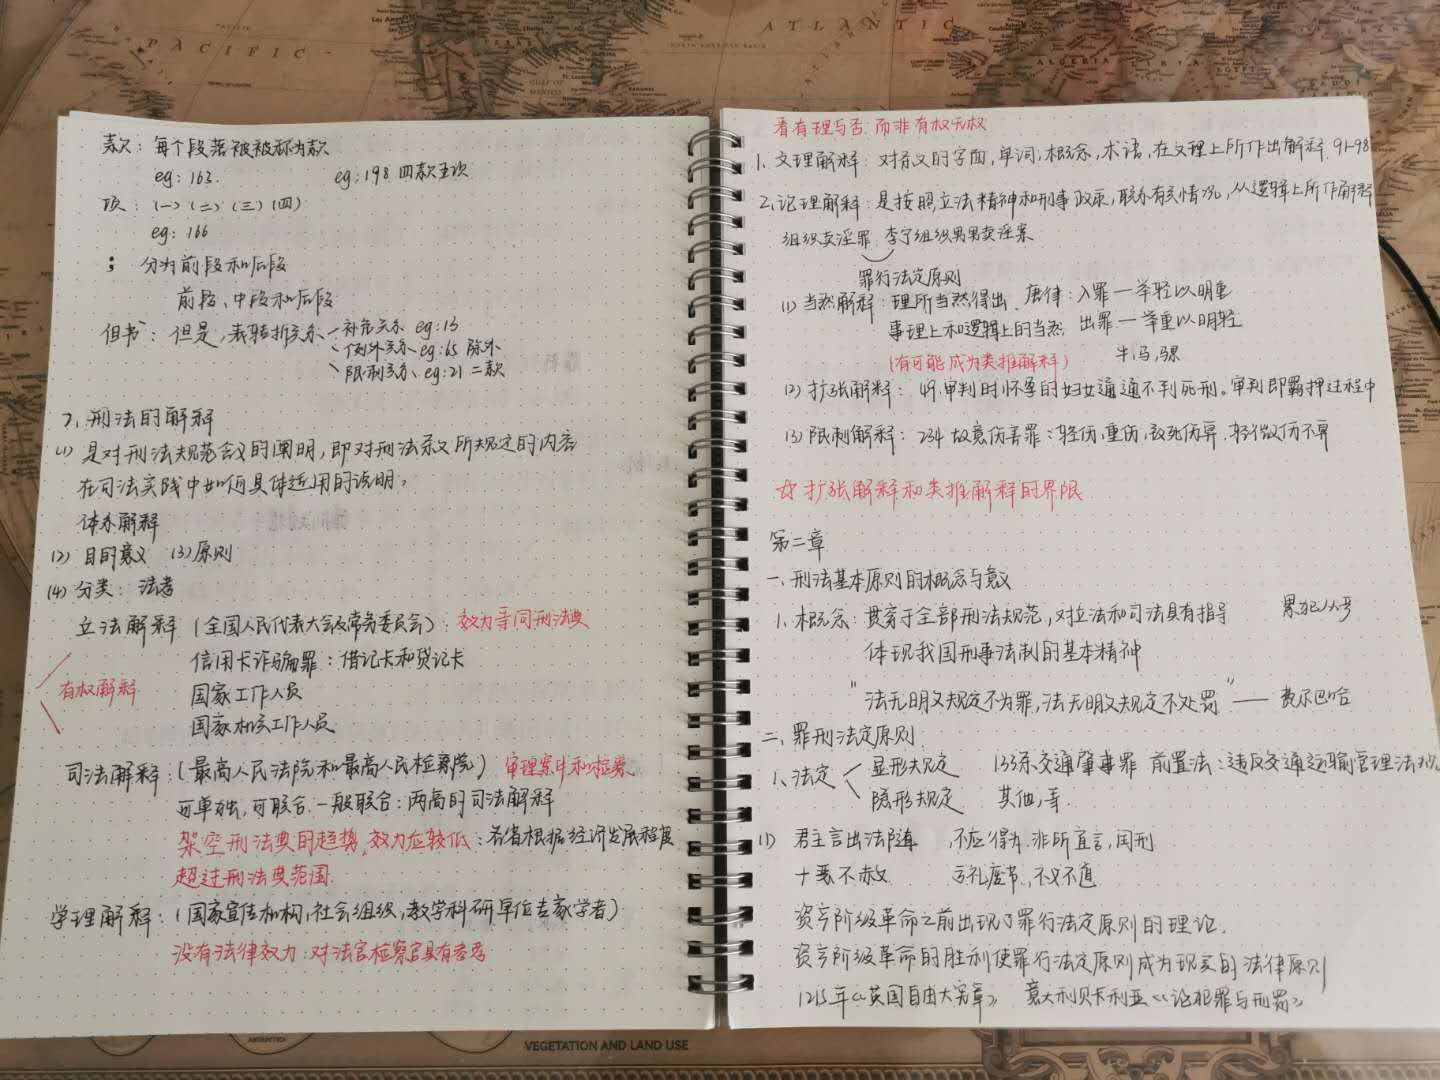 款：每个段落被被称为款
eg：163.    eg：198 四款五项
项：(一)(二)(三)(四)
eg：166
；分为前段和后段
前段、中段和后段
但书：但是，表转折关系 补充关系 eg:13
例外关系 eg:65 除外
限制关系 eg:21 二款
7. 刑法的解释
(1) 是对刑法规范含义的阐明，即对刑法条文所规定的内容
在司法实践中如何具体适用的说明。
体系解释
(2) 目的意义 (3) 原则
(4) 分类：法考
立法解释（全国人民代表大会及常务委员会）：效力等同刑法典
信用卡诈骗罪：借记卡和贷记卡
有权解释 国家工作人员
国家机关工作人员
司法解释：（最高人民法院和最高人民检察院）审理案件和检察
可单独，可联合.一般联合：两高的司法解释
架空刑法典的趋势，效力应较低：各省根据经济发展程度
超过刑法典范围.
学理解释：（国家宣传机构，社会组织，教学科研单位专家学者）
没有法律效力：对法官检察官具有参考
看有理与否.而非有权无权
1. 文理解释：对条文的字面，单词，概念，术语，在文理上所作出解释. 91-98
2. 论理解释：是按照立法精神和刑事政策，联系有关情况，从逻辑上所作解释
组织卖淫罪 李宁组织男男卖淫案
罪行法定原则
(1) 当然解释：理所当然得出. 唐律：入罪—举轻以明重
事理上和逻辑上的当然 出罪—举重以明轻
（有可能成为类推解释） 牛，马，骡
(2) 扩张解释：49.审判时怀孕的妇女通通不判死刑。审判即羁押过程中
(3) 限制解释：234 故意伤害罪：轻伤，重伤，致死伤算.轻微伤不算
☆扩张解释和类推解释的界限
第二章
一.刑法基本原则的概念与意义
1. 概念：贯穿于全部刑法规范，对立法和司法具有指导 累犯从严
体现我国刑事法制的基本精神
“法无明文规定不为罪，法无明文规定不处罚”——费尔巴哈
二、罪刑法定原则
1、法定 显形规定 133条交通肇事罪 前置法：违反交通运输管理法规
隐形规定 其他，等.
(1) 君主言出法随，不应得为.非所宜言，闰刑
十恶不赦 亏礼废节，不义不道
资产阶级革命之前出现了罪行法定原则的理论.
资产阶级革命的胜利使罪行法定原则成为现实的法律原则
1215年《英国自由大宪章》 意大利贝卡利亚《论犯罪与刑罚》
PACIFIC
ATLANTIC
NORTH AMERICAN BASIN
GULF OF MEXICO
ALGERIA
EGYPT
ANTARCTICA
VEGETATION AND LAND USE